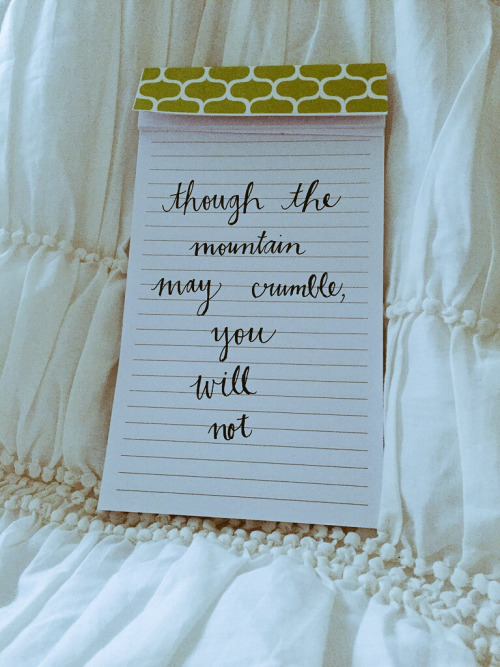 though the
mountain
may crumble,
you
will
not